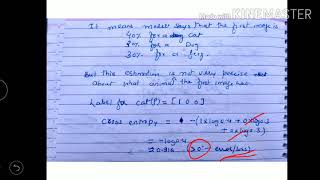 Made with KINEMASTER
It means model says that the first image is
40% for a cat
30% for a Dog
30% for a frog.
But this estimation is not very precise
about what animal the first image has
Label for cat(P) = [1 0 0]
Cross entropy = -(1xlog0.4 + 0xlog0.3
+ 0xlog0.3)
= -log0.4
≈ 0.916 (>0:- error/loss)